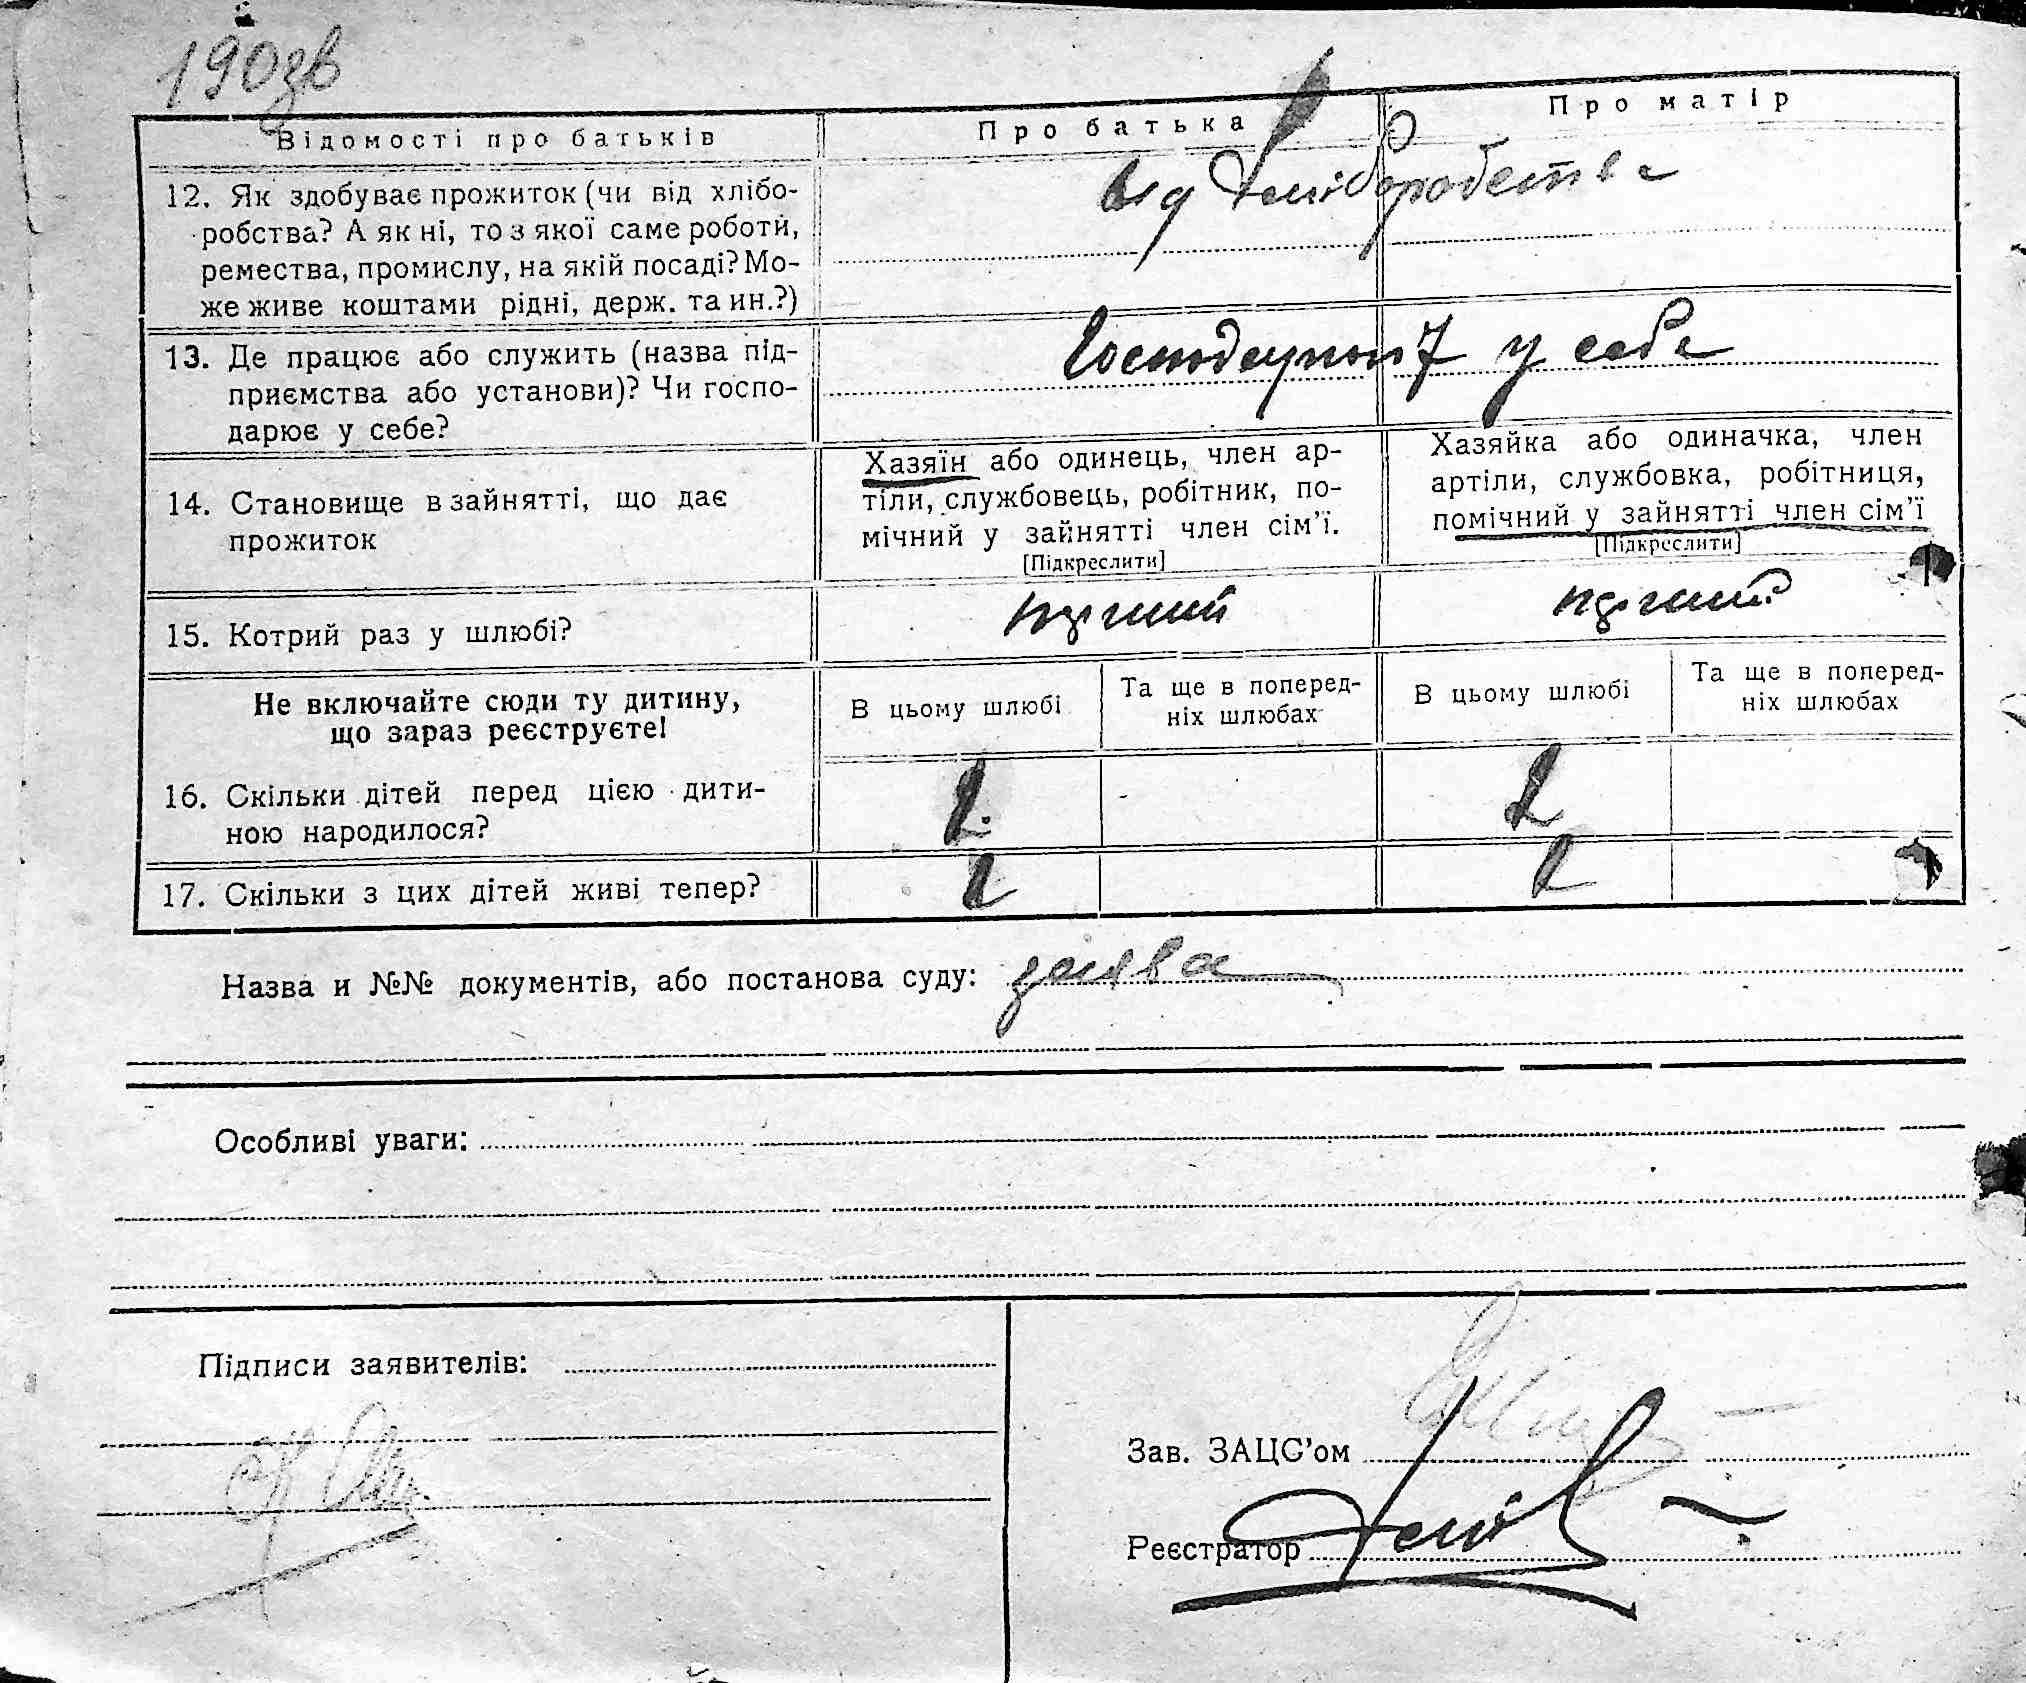 190зв
Відомості про батьків
Про батька
Про матір
12. Як здобуває прожиток (чи від хлібо-
робства? А як ні, то з якої саме роботи,
ремества, промислу, на якій посаді? Мо-
же живе коштами рідні, держ. та ин.?)
від хліборобства
13. Де працює або служить (назва під-
приємства або установи)? Чи госпо-
дарює у себе?
у себе
14. Становище в зайнятті, що дає
прожиток
Хазяїн або одинець, член ар-
тіли, службовець, робітник, по-
мічний у зайнятті член сім'ї.
[Підкреслити]
Хазяйка або одиначка, член
артіли, службовка, робітниця,
помічний у зайнятті член сім'ї
[Підкреслити]
15. Котрий раз у шлюбі?
перший
перший
Не включайте сюди ту дитину,
що зараз реєструєте!
В цьому шлюбі
Та ще в поперед-
ніх шлюбах
В цьому шлюбі
Та ще в поперед-
ніх шлюбах
16. Скільки дітей перед цією дити-
ною народилося?
2
-
2
17. Скільки з цих дітей живі тепер?
2
2
Назва и №№ документів, або постанова суду: заява
Особливі уваги:
Підписи заявителів:
Зав. ЗАЦС'ом
Реєстратор